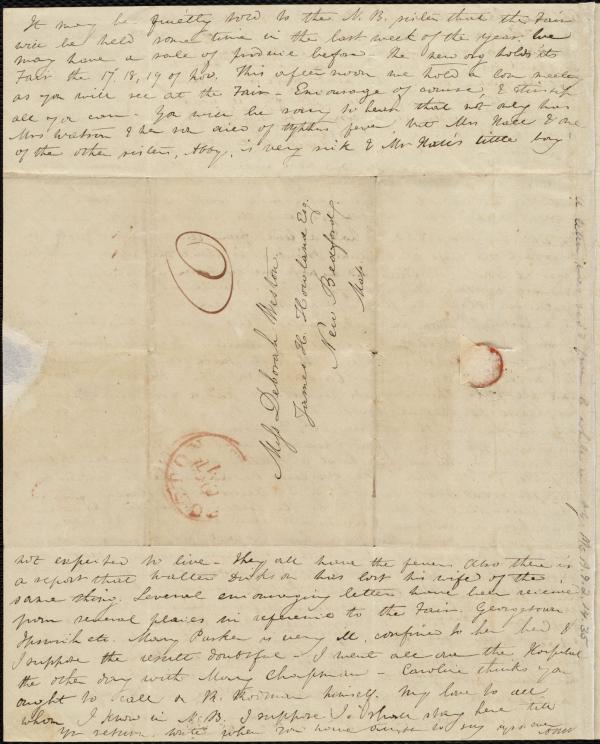 It may be quietly told to the N. B. sisters that the Fair
will be held some time in the last week of the year. We
may have a sale of produce before the new org. holds its
Fair the 17, 18, 19 of Nov. This afternoon we hold a Com meeting
as you will see at the Fair - Encourage of course, &
all you can. You will be sorry to hear that not only has
Mrs Watson & her son died of typhus fever, but Mrs Hall & one
of the other sisters, Abby, is very sick & Mr Hall's little boy
Miss Deborah Weston.
James H. Howland Esq.
New Bedford.
Mass.
6
BOSTON
Ms. A. 9. 2. 14. 35
not expected to live - They all have the fever. Also there is
a report that Walter has lost his wife of the
same thing. Several encouraging letters have been received
from several places in reference to the Fair. Georgetown
Ipswich etc. Mary Parker is very ill, confined to her bed &
I suppose the result doubtful - I went all over the Hospital
the other day with Mary Chapman - Caroline thinks you
ought to call on Mr. Rodman himself. My love to all
whom I know in N. B. I suppose I shall stay here till
you return. Write when you have